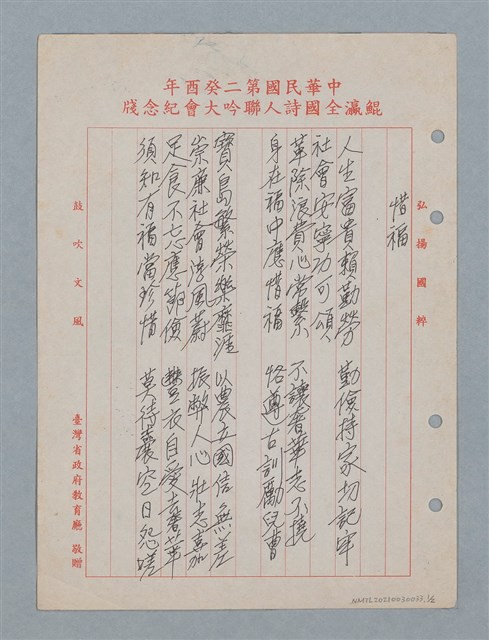 中華民國第二癸酉年
鯤瀛全國詩人聯吟大會紀念牋
弘揚國粹
惜福
人生富貴賴勤勞 勤儉持家切記牢
社會安寧功可頌
革除浪費心常繫 不讓奢華志不撓
身在福中應惜福 恪遵古訓勵兒曹
寶島繁榮樂靡涯 以農立國信無差
崇廉社會淳風蔚 振弊人心壯志嘉
足食不忘應節儉 豐衣自愛去奢華
須知有福當珍惜 莫待囊空日怨嗟
鼓吹文風
臺灣省政府教育廳 敬贈
NMTL20230030033.1/2